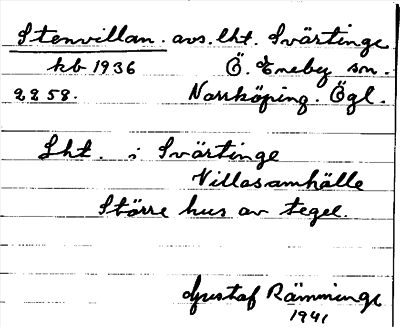 Stenvillan. avs. lht. Svärtinge
kb 1936 Ö. Eneby sn.
2258. Norrköping. Ögl.
Lht. i Svärtinge
Villasamhälle
Större hus av tegel.
Gustaf Rämminge
1941